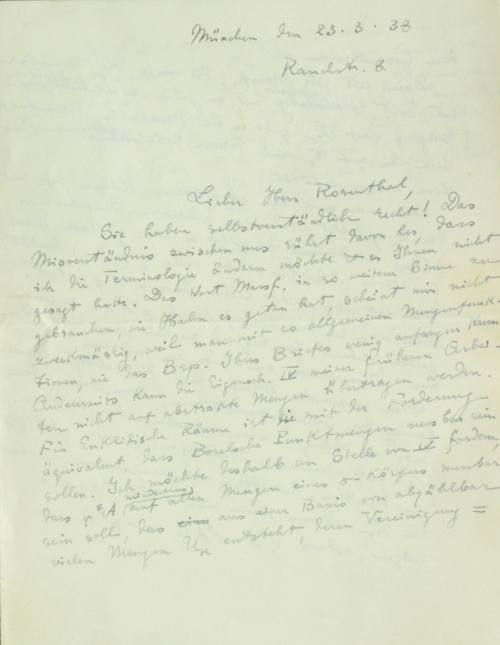 München den 23.3.38
Rauchstr. 8.
Lieber Herr Rosenthal,
Sie haben selbstverständlich recht! Das
Missverständnis zwischen uns rührt davon her, dass
ich die Terminologie ändern möchte & es Ihnen nicht
gesagt hatte. Das Wort Massf. in so weitem Sinne zu
gebrauchen, wie Hahn es getan hat, scheint mir nicht
zweckmässig, weil man mit so allgemeinen Mengenfunk-
tionen, wie das Beisp. Ihres Briefes wenig anfangen kann.
Andererseits kann die Eigensch. IV meiner früheren Arbei-
ten nicht auf abstrakte Mengen übertragen werden.
Für Euklidische Räume ist sie mit der Forderung
äquivalent, dass Borelsche Punktmengen messbar sein
sollen. Ich möchte deshalb an Stelle von IV fordern,
dass μ*A auf allen Mengen eines σ-Körpers messbar
sein soll, das aus einer Basis von abzählbar
vielen Mengen U entsteht, deren Vereinigung =